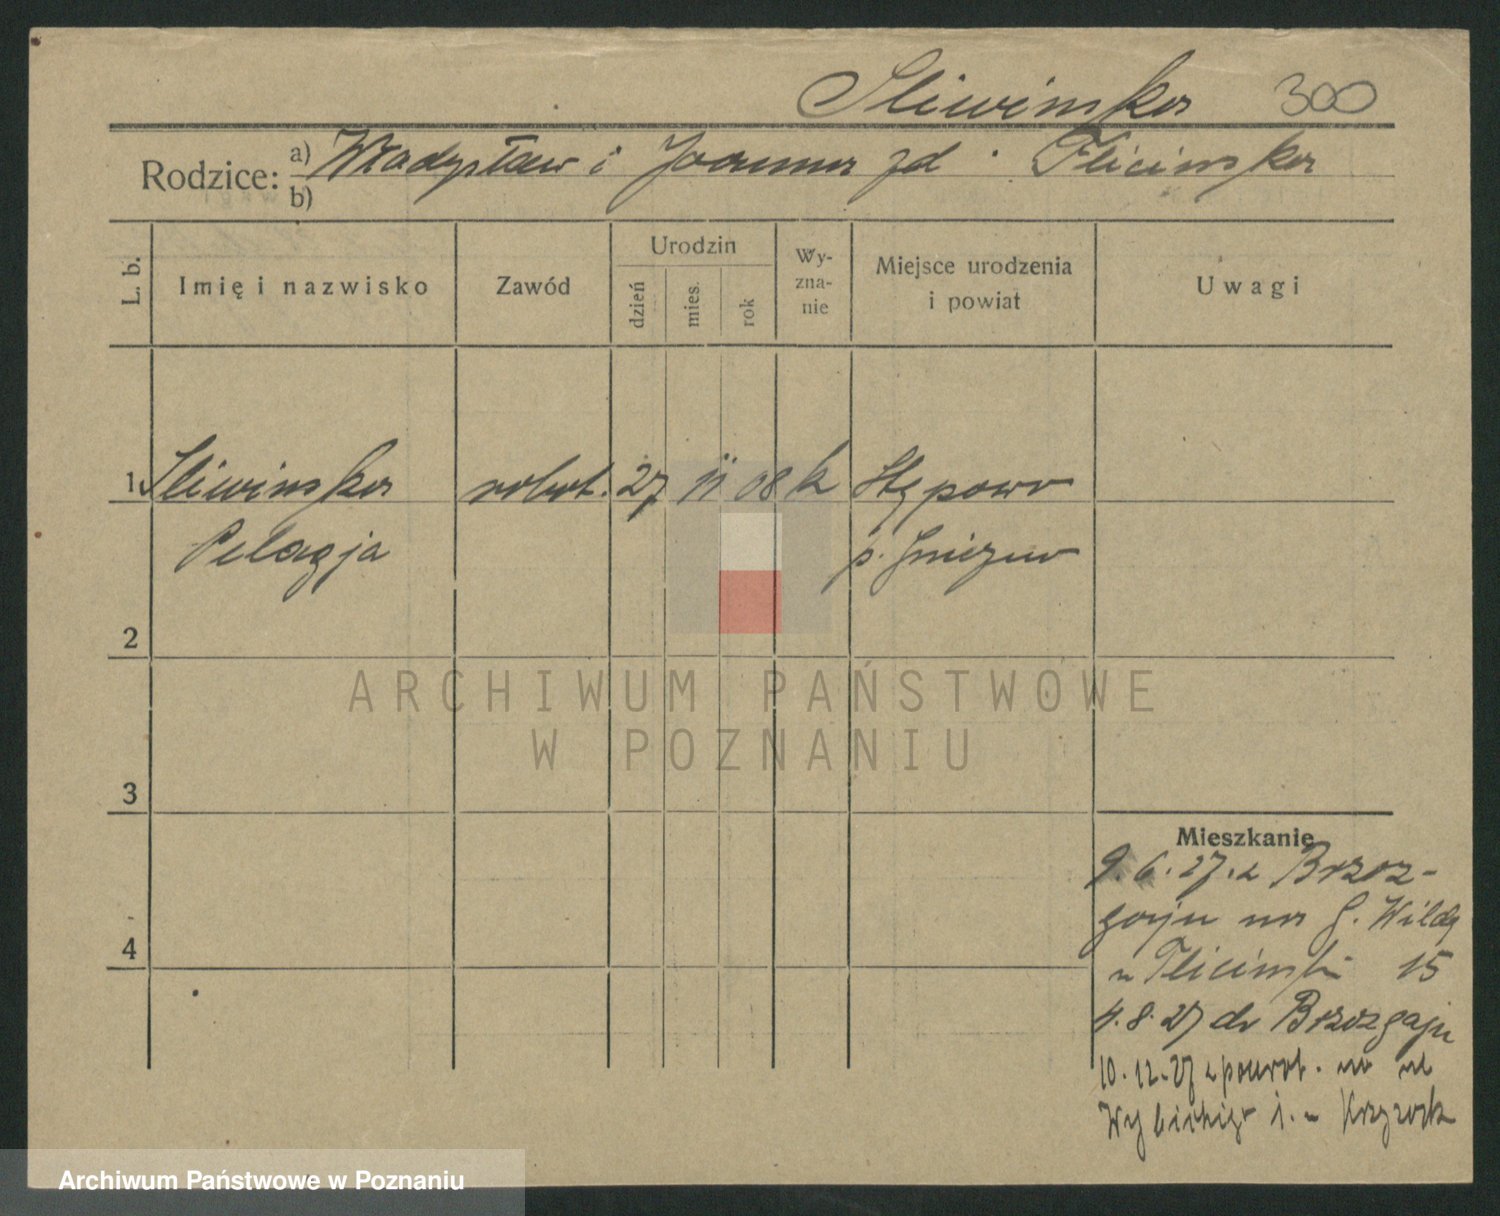 Sliwinska 300
Rodzice: a) Władysław i Joanna zd. Flicinska
b)
L. b. Imię i nazwisko Zawód Urodzin dzień mies. rok Wy-zna-nie Miejsce urodzenia i powiat Uwagi
1 Sliwinska robot. 27 11 08 k Stępowo
Pelagja p. Gniezno
2
ARCHIWUM PAŃSTWOWE
W POZNANIU
3
Mieszkanie
9.6.27. z Brzoz-
gaju na G. Wildę
u Flicinski 15
4.8.27 do Brzozgaju
10.12.27 z powrot. na ul
4
Archiwum Państwowe w Poznaniu